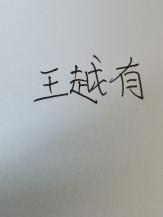 王越有